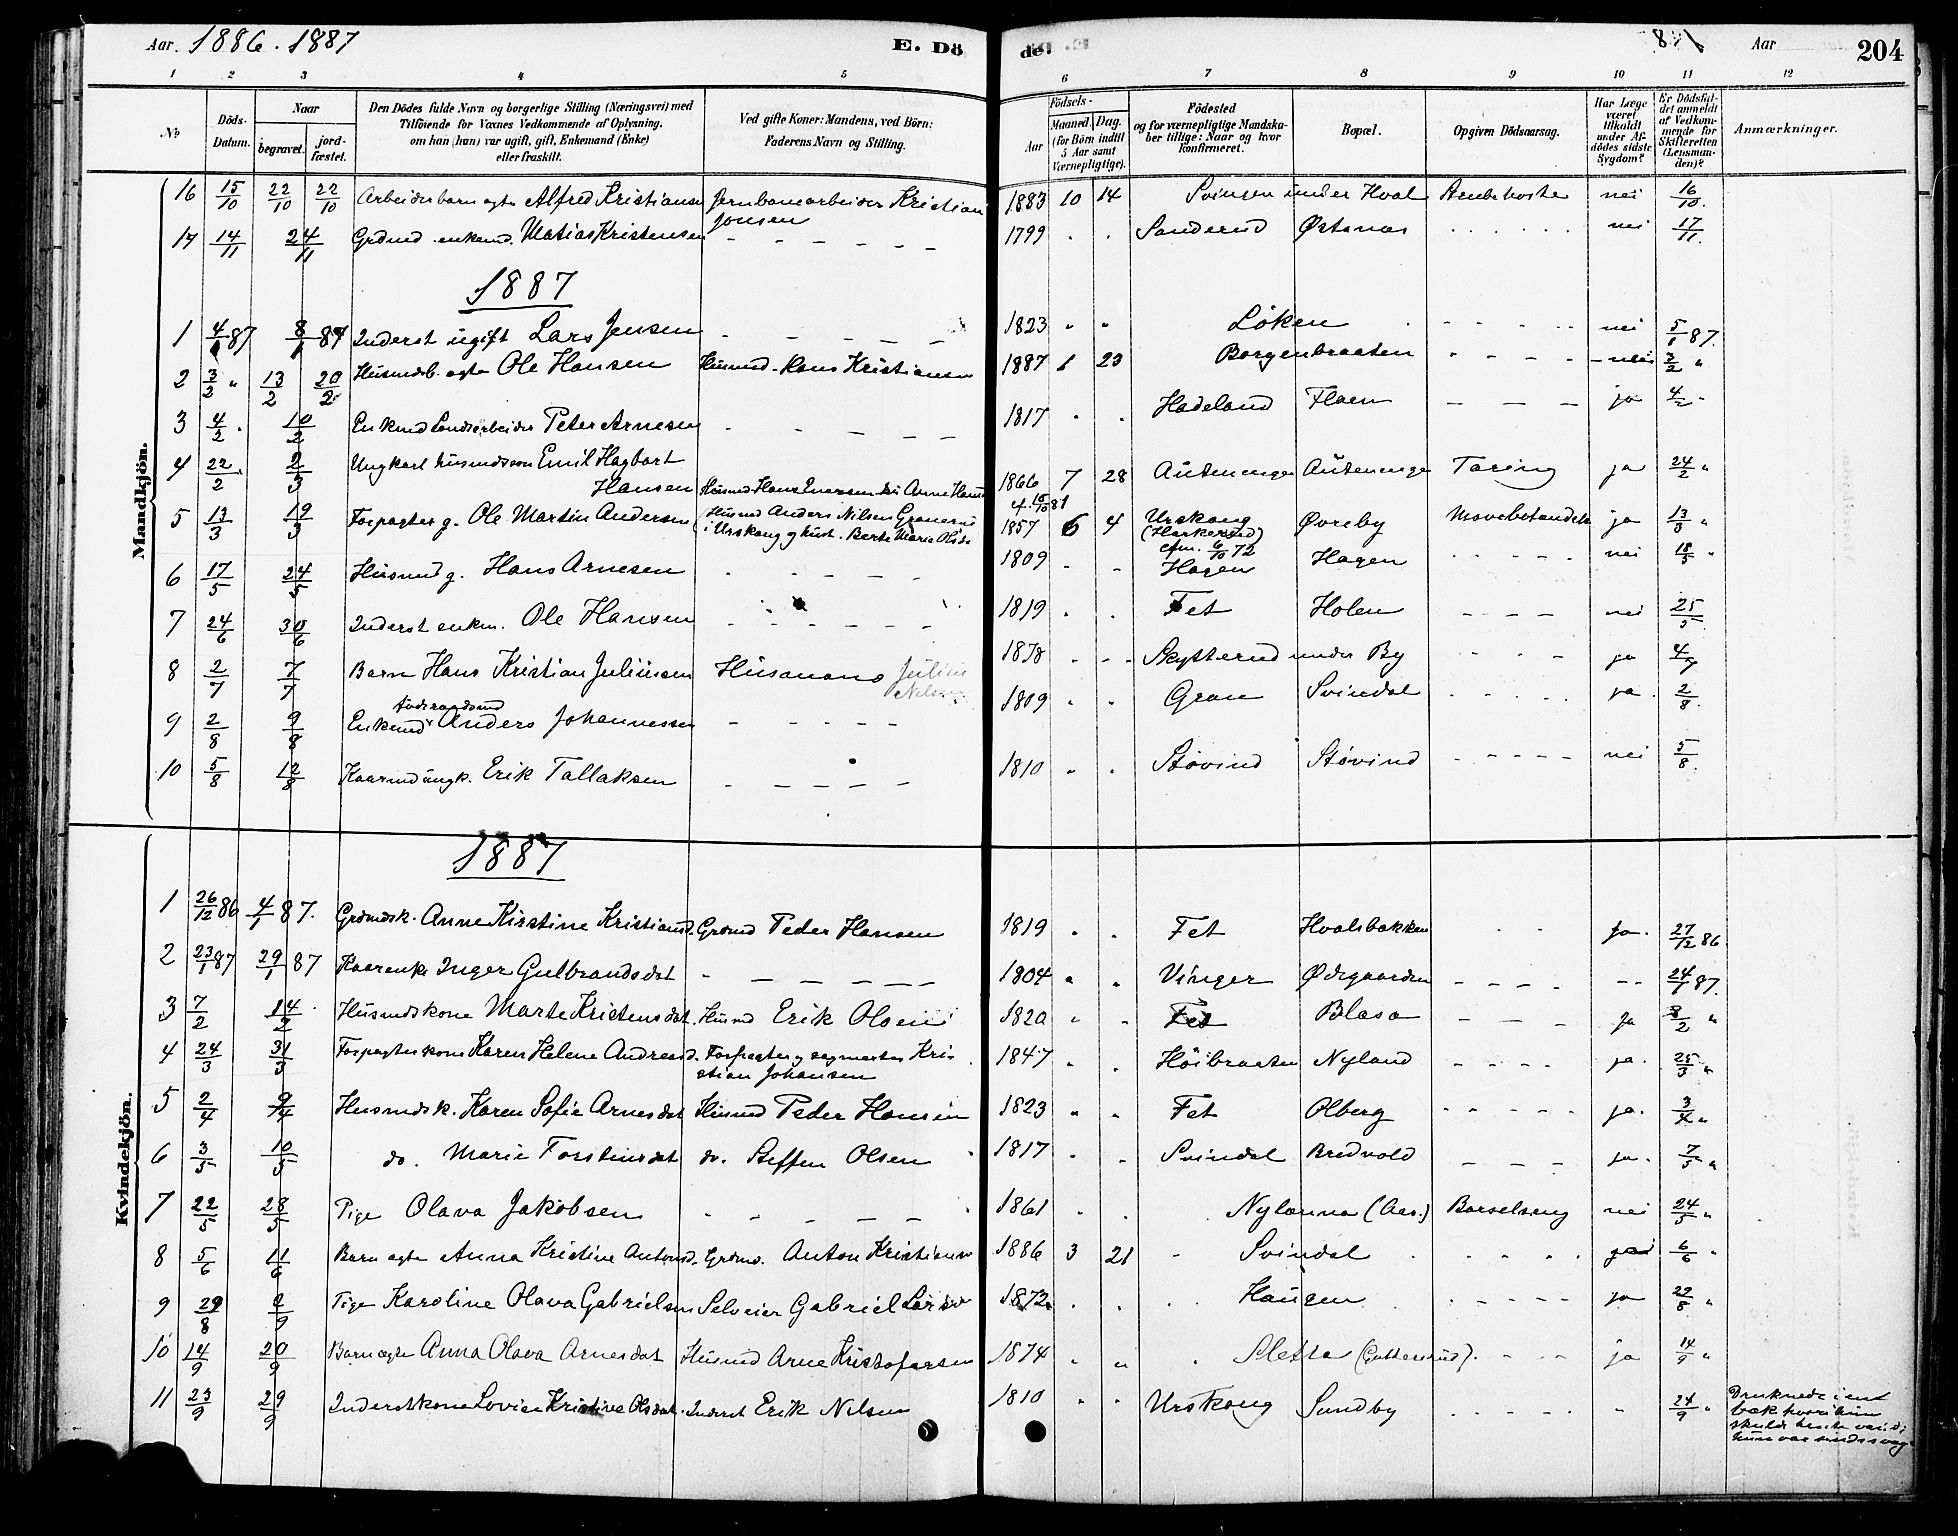 Aar. 1886. 1887 E. Dö
de Aar 204
1 2 3 4 5 6 7 8 9 10 11 12
No Döds-Datum. Naar begravet. jord-fæstet. Den Dödes fulde Navn og borgerlige Stilling (Næringsvei) med Tilföiende for Voxnes Vedkommende af Oplysning. om han (hun) var ugift, gift, Enkemand (Enke) eller fraskilt. Ved gifte Koner: Mandens, ved Börn: Faderens Navn og Stilling. Födsels- Aar Maaned. Dag. (for Börn indtil 5 Aar samt Værnepligtige). Födested og for værnepligtige Mandskaber tillige: Naar og hvor konfirmeret. Bopæl. Opgiven Dödsaarsag. Har Læge været tilkaldt under Afdödes sidste Sygdom? Er Dödsfaldet anmeldt af Vedkommende for Skifteretten (Lensmanden)? Anmærkninger.
Mandkjön.
16 15/10 22/10 22/10 Arbeiderbarn ægte Alfred Kristiansen Jernbanearbeider Kristian Jonsen 1883 10 14 Svingen under Hval nei 16/10.
17 14/11 24/11 Grdmd. enkemd. Matias Kristensen - - - - - - 1799 . . Sanderud Østenas . . . . . . nei 17/11.
1887
1 4/1 87 8/1 87 Inderst ugift Lars Jensen - - - - - 1823 " " Løken . - - - - nei 5/1 87.
2 3/2 " 13/2 20/2 Husmdsb. ægte Ole Hansen Husmd. Hans Kristiansen 1887 1 23 Borgenbraaten - - - - nei 3/2 "
3 4/2 . 10/2 Enkemd Landarbeider Peter Arnesen - - - - - 1817 . . Hadeland Floen - - - ja 4/2 "
4 22/2 . 2/3 Ungkarl husmdssøn Emil Hagbart Hansen Husmd Hans Iversen Anne 1866 7 28 Autenenga Autenenga Tæring ja 24/2 "
5 13/3 19/3 Forpagter g. Ole Martin Andersen (Husmd Anders Nilsen Granerud i Urskoug g hust. Berte Marie Olsd. 1857 6 4 Urskoug (Harkerud) cfm. 6/10 72 Øvreby Mavebetændelse ja 13/3 "
6 17/5 24/5 Husmd g. Hans Arnesen - - - - - 1809 - - Hagen Hagen . . . . . nei 18/5 "
7 24/6 30/6 Inderst enkm. Ole Hansen - - - - - - 1819 . . Fet Holen - - - - nei 25/5
8 2/7 7/7 Barn Hans Kristian Juliussen Husmand Julius Nilsen 1878 - - - Skytterud under By . . . . . ja 4/7
9 2/8 9/8 Enkemd Føderaadsmd Anders Johannessen - - - - - 1809 " . Gran Svindal . . . . . ja. 2/8.
10 5/8 12/8 Kaarmd ungk. Erik Tallaksen - - - - - 1810 " . Støvind Støvind - - - - - - nei 5/8.
Kvindekjön.
1887
1 26/12 86 4/1 87. Grdmdsk. Anne Kirstine Kristiansd. Grdmd Peder Hansen 1819 " . Fet Hvalsbakken . . ja. 27/12 86.
2 23/1 87 29/1 87 Kaarenke Inger Gulbrandsdat - - - - - - 1804 " . Vinger Ødegaarden - - - - -- 24/1 87.
3 7/2 14/2 Husmdskone Marte Kristensdat. Husmd Erik Olsen 1820 " - Fet Blasa - - - ja 8/2 "
4 24/3 31/3 Forpagterskone Karen Helene Andersd. Forpagter g sagmester Kristian Johansen 1847 " . Høibraaten Nyland - - - - ja. 25/3 "
5 2/4 9/4 Husmdsk. Karen Sofie Arnesdat Husmd Peder Hansen 1823 " . Fet Olberg . - - - . ja. 3/4 "
6 3/5 10/5 do. Marie Torstensdat do. Steffen Olsen 1817 . . Svindal Bredvold - - - - ja. 7/5 "
7 22/5 28/5 Pige Olava Jakobsen - - - - - 1861 " . Nylænna (Aas.) Barselseng nei 24/5 "
8 5/6 11/6 Barn ægte Anna Kristine Antonsd. Grdmd. Anton Kristiansen 1886 3 21 - Svindal . . . " 6/6 "
9 29/8 2/9 Pige Karoline Olava Gabrielsen Selveier Gabriel Larsen 1872 . . . Haugen . - - - - ja 22/8 "
10 14/9 20/9 Barn ægte Anna Olava Arnesdat Husmd Arne Kristofersen 1874 " " . Sletta (Guttersrud). . - - . ja 14/9 "
11 23/9 29/9 Inderstkone Lovise Kristine Olsdat. Inderst Erik Nilsen 1810 " " Urskoug Sundby . . . . . " 24/9 " Druknede i en bæk hvori hun skulde hente vand; hun var sindssvag